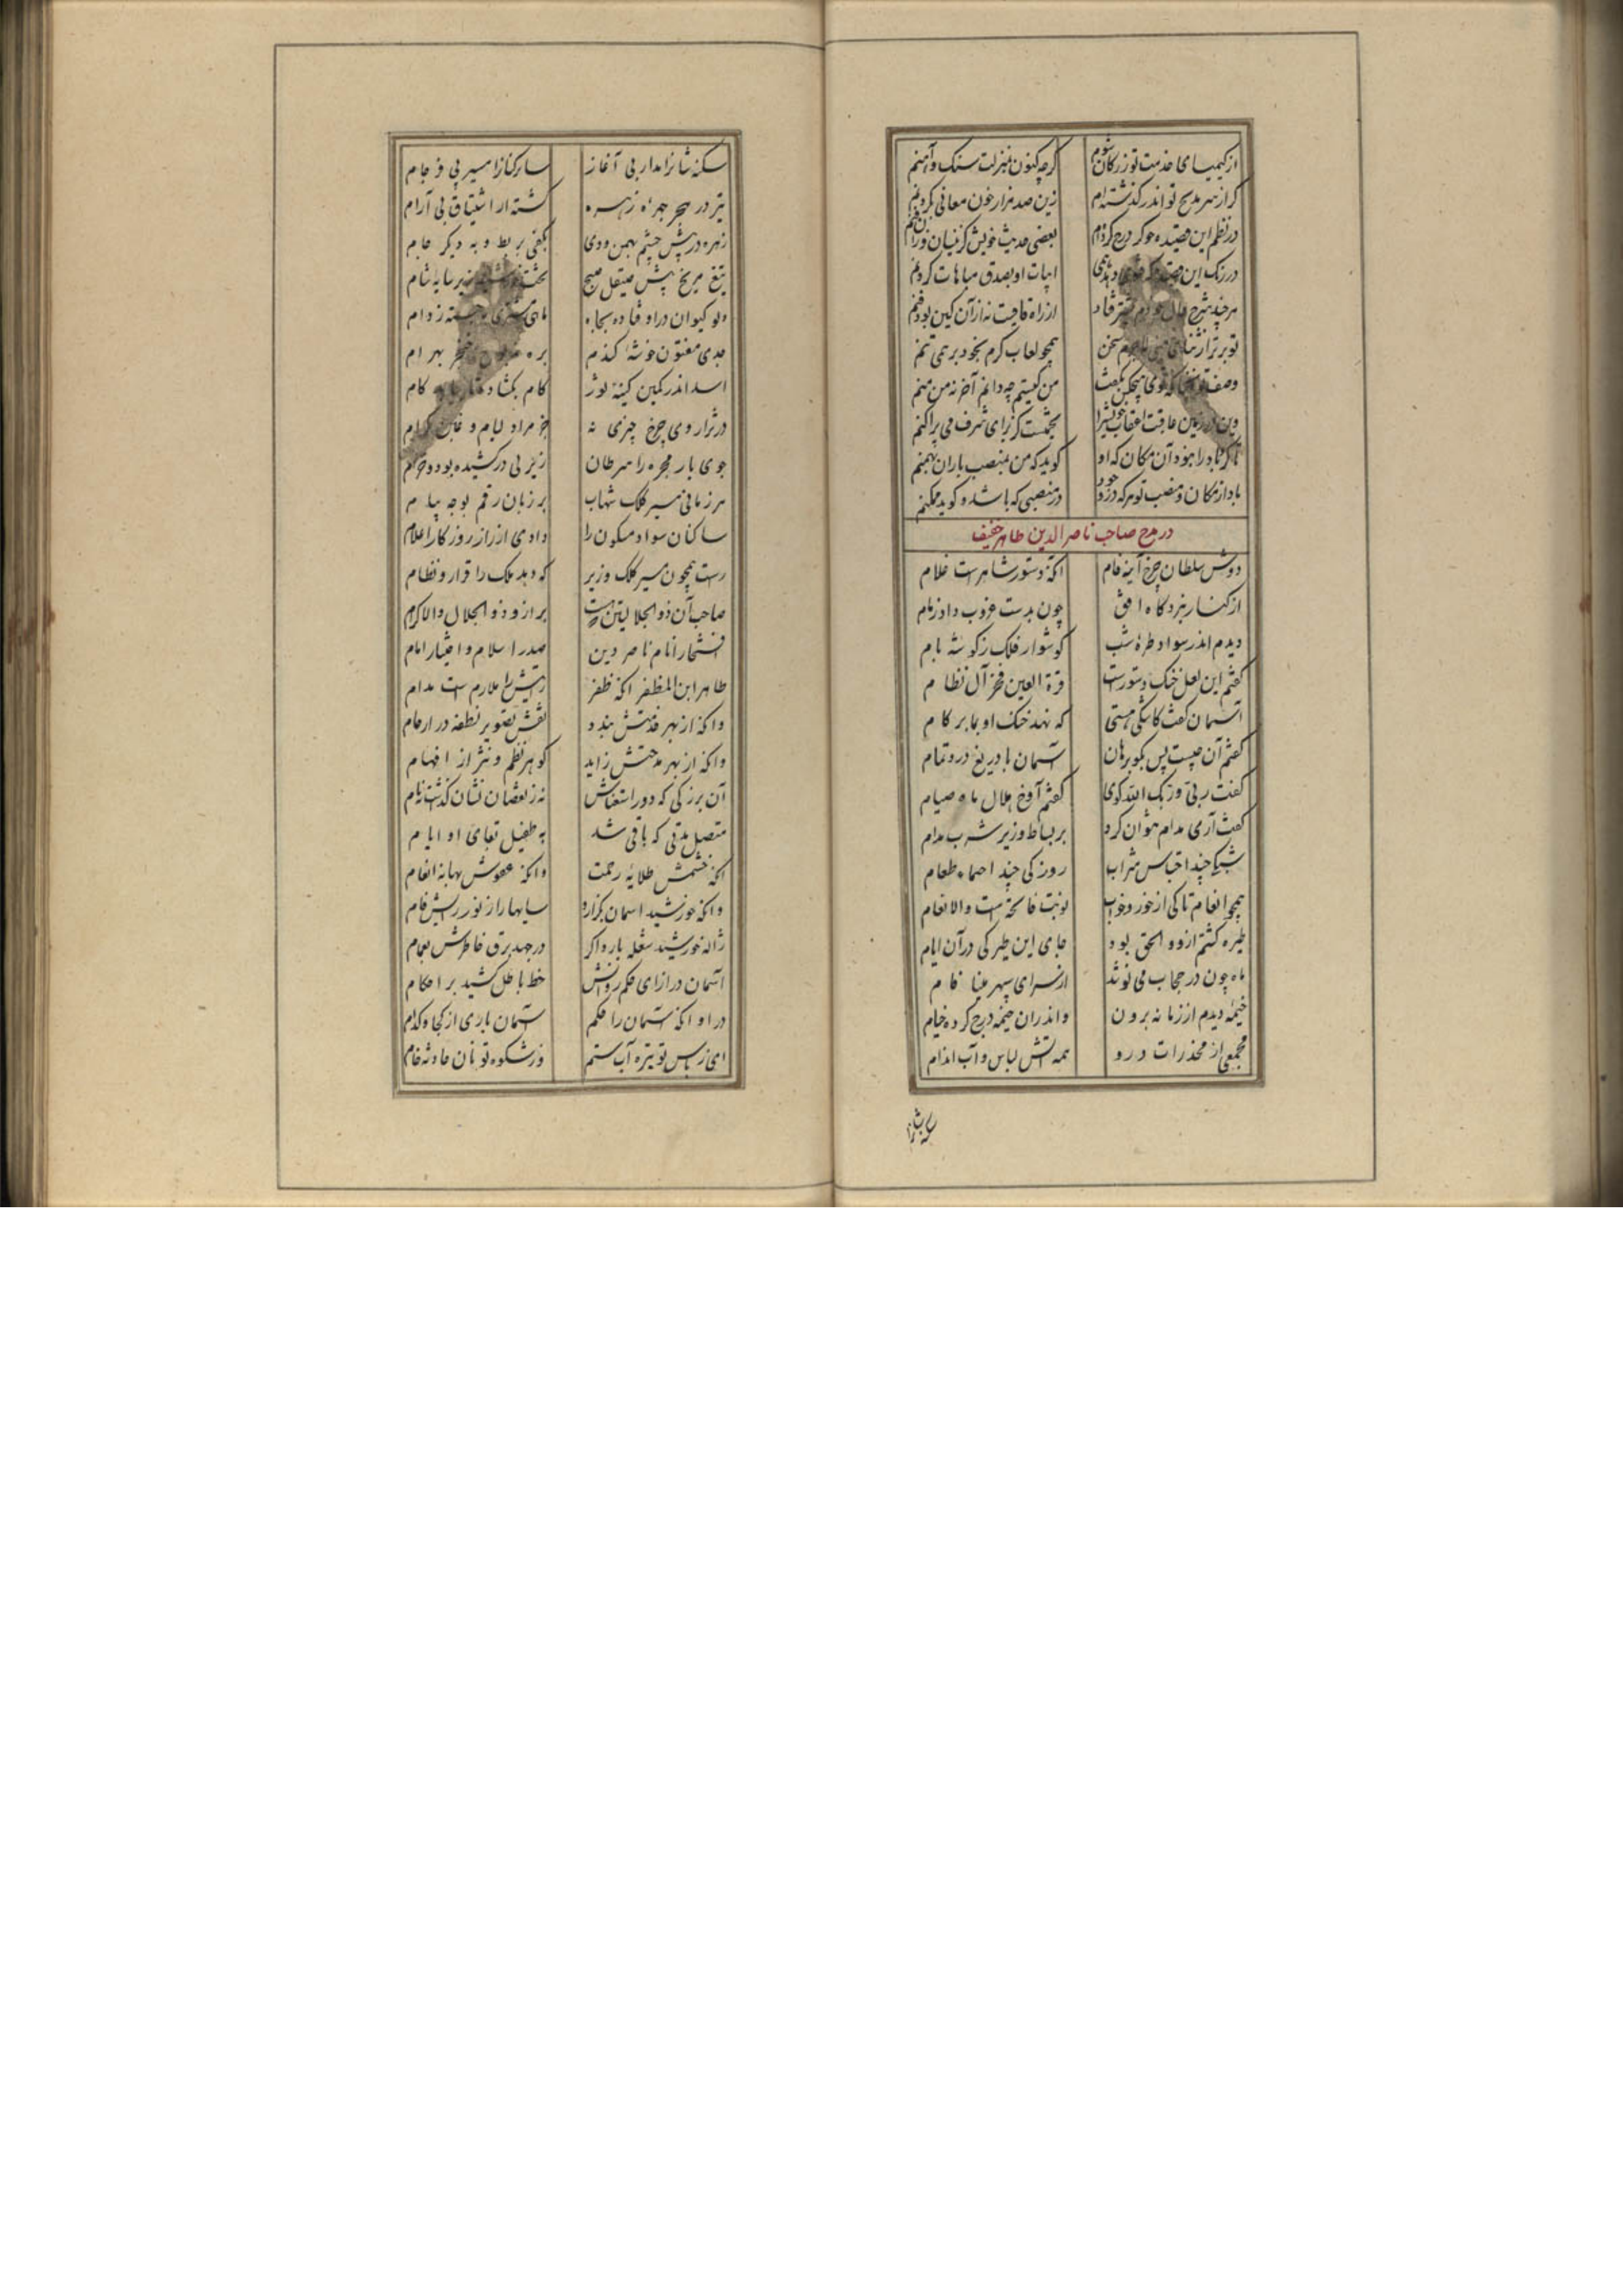 از کیمیای خدمت تو زر کان شوم گرچه کنون بمنزلت سنک و آهنم
گر از سر مدیح تو اندر گذشته‌ام زین صد هزار خون معانی بگردنم
در نظم این قصیده جو گر درج کرده‌ام بعضی حدیث خویش
در رنک این ابیات او بصدق مباهات کردنم
هرچند شرح حال از راه قافیت نه از آن کین بود فنم
تو برتر از ثنای سخن همچو لعاب کرم بخود بر همی تنم
وصف من کیستم چه دانم آخر نه من منم
وین در زمین عاقبت اعقاب خویش را
تا کز باد را نبود آن مکان که او کوید که من بمنصب باران بهمنم
باد از مکان و منصب تو هر که در وجود در منصبی که باشد و کوید ممکنم
در مدح صاحب ناصر الدین طاهر خفیف
دوش سلطان چرخ آینه فام آنکه دستور شاه راست غلام
از کنار نبردگاه افق چون بدست غروب داد زمام
دیدم اندر سواد طره شب کوشوار فلک ز کوشه بام
کفتم این لعل خنک دستورست قرة العین فخر آل نظام
آسمان کفت کاشکی هستی که نهد خنک او بما بر کام
کفتم آن چیست پس بکو برهان آسمان با دریغ درد تمام
کفت ربی و ربک الله کوی کفتم آوخ هلال ماه صیام
کفت آری مدام نتوان کرد بر بساط وزیر شرب مدام
شبکی چند احتباس شراب روز کی چند احتماء طعام
همچو انعام تا کی از خور و خواب نوبت فاتحه است والانعام
طیره کشتم ازو و الحق بود جای این طیرکی در آن ایام
ماه چون در حجاب می نوشد از سرای سپهر مینا فام
خیمه دیدم از زمانه برون و اندران خیمه درج کرده خیام
مجمعی از مخدرات درو همه آتش لباس و آب اندام
سکنه شانرا مدار بی آغاز سایرکانرا مسیر بی فرجام
تیر در هجر چهره زهره کشته از اشتیاق بی آرام
زهره در پیش چشم بهمن ودی بکفی بربط و به دیکر جام
تیغ مریخ پیش صیقل صبح تحت زیر سایه شام
دلو کیوان در اوفتاده بچاه ماهی مشتری ز دام
جدی مفتون خوشه کندم بره بهرام
اسد اندر کمین کینه ثور کام بکشاده کام
در ترازوی چرخ چیزی نه جز مراد لئام و غبن کرام
جوی بار مجره را سرطان زیر پی درکشیده بود و خرام
هر زمانی مسیر کلک شهاب بر زبان رقم بوجه پیام
ساکنان سواد مسکون را دادی از راز روزکار اعلام
راست همچون مسیر کلک وزیر که دهد ملک را قرار و نظام
صاحب آن ذوالجلالتین که هست برتر از و ذوالجلال والاکرام
افتخار انام ناصر دین صدر اسلام و اختیار امام
طاهر ابن المظفر آنکه ظفر رایتش را ملازم ست مدام
وانکه از بهر خدمتش بندد نقش تصویر نطفه در ارحام
وانکه از بهر مدحتش زاید کوهر نظم و نثر از افهام
آن بزرکی که دور انتعاش نه ز نقصان نشان کذاشت نه نام
متصل مدتی که باقی شد به طفیل بقای او ایام
آنکه خشمش طلایه رحمت وانکه عفوش بهانه انعام
وانکه خورشید آسمان بکزارد سایها را ز نور رایش فام
ژاله خورشید شعله بار دا کر در جهد برق خاطرش بغمام
آسمان در ازای حکم روانش خط باطل کشید بر احکام
در او آنکه آسمان را حکم آسمان باری از کجا و کدام
ای ز باس تو تیره آب ستم وز شکوه تو نان حادثه خام
سکنه شانرا